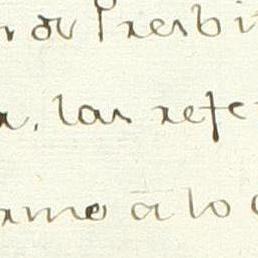 Presbi
a, las refe
amo a lo